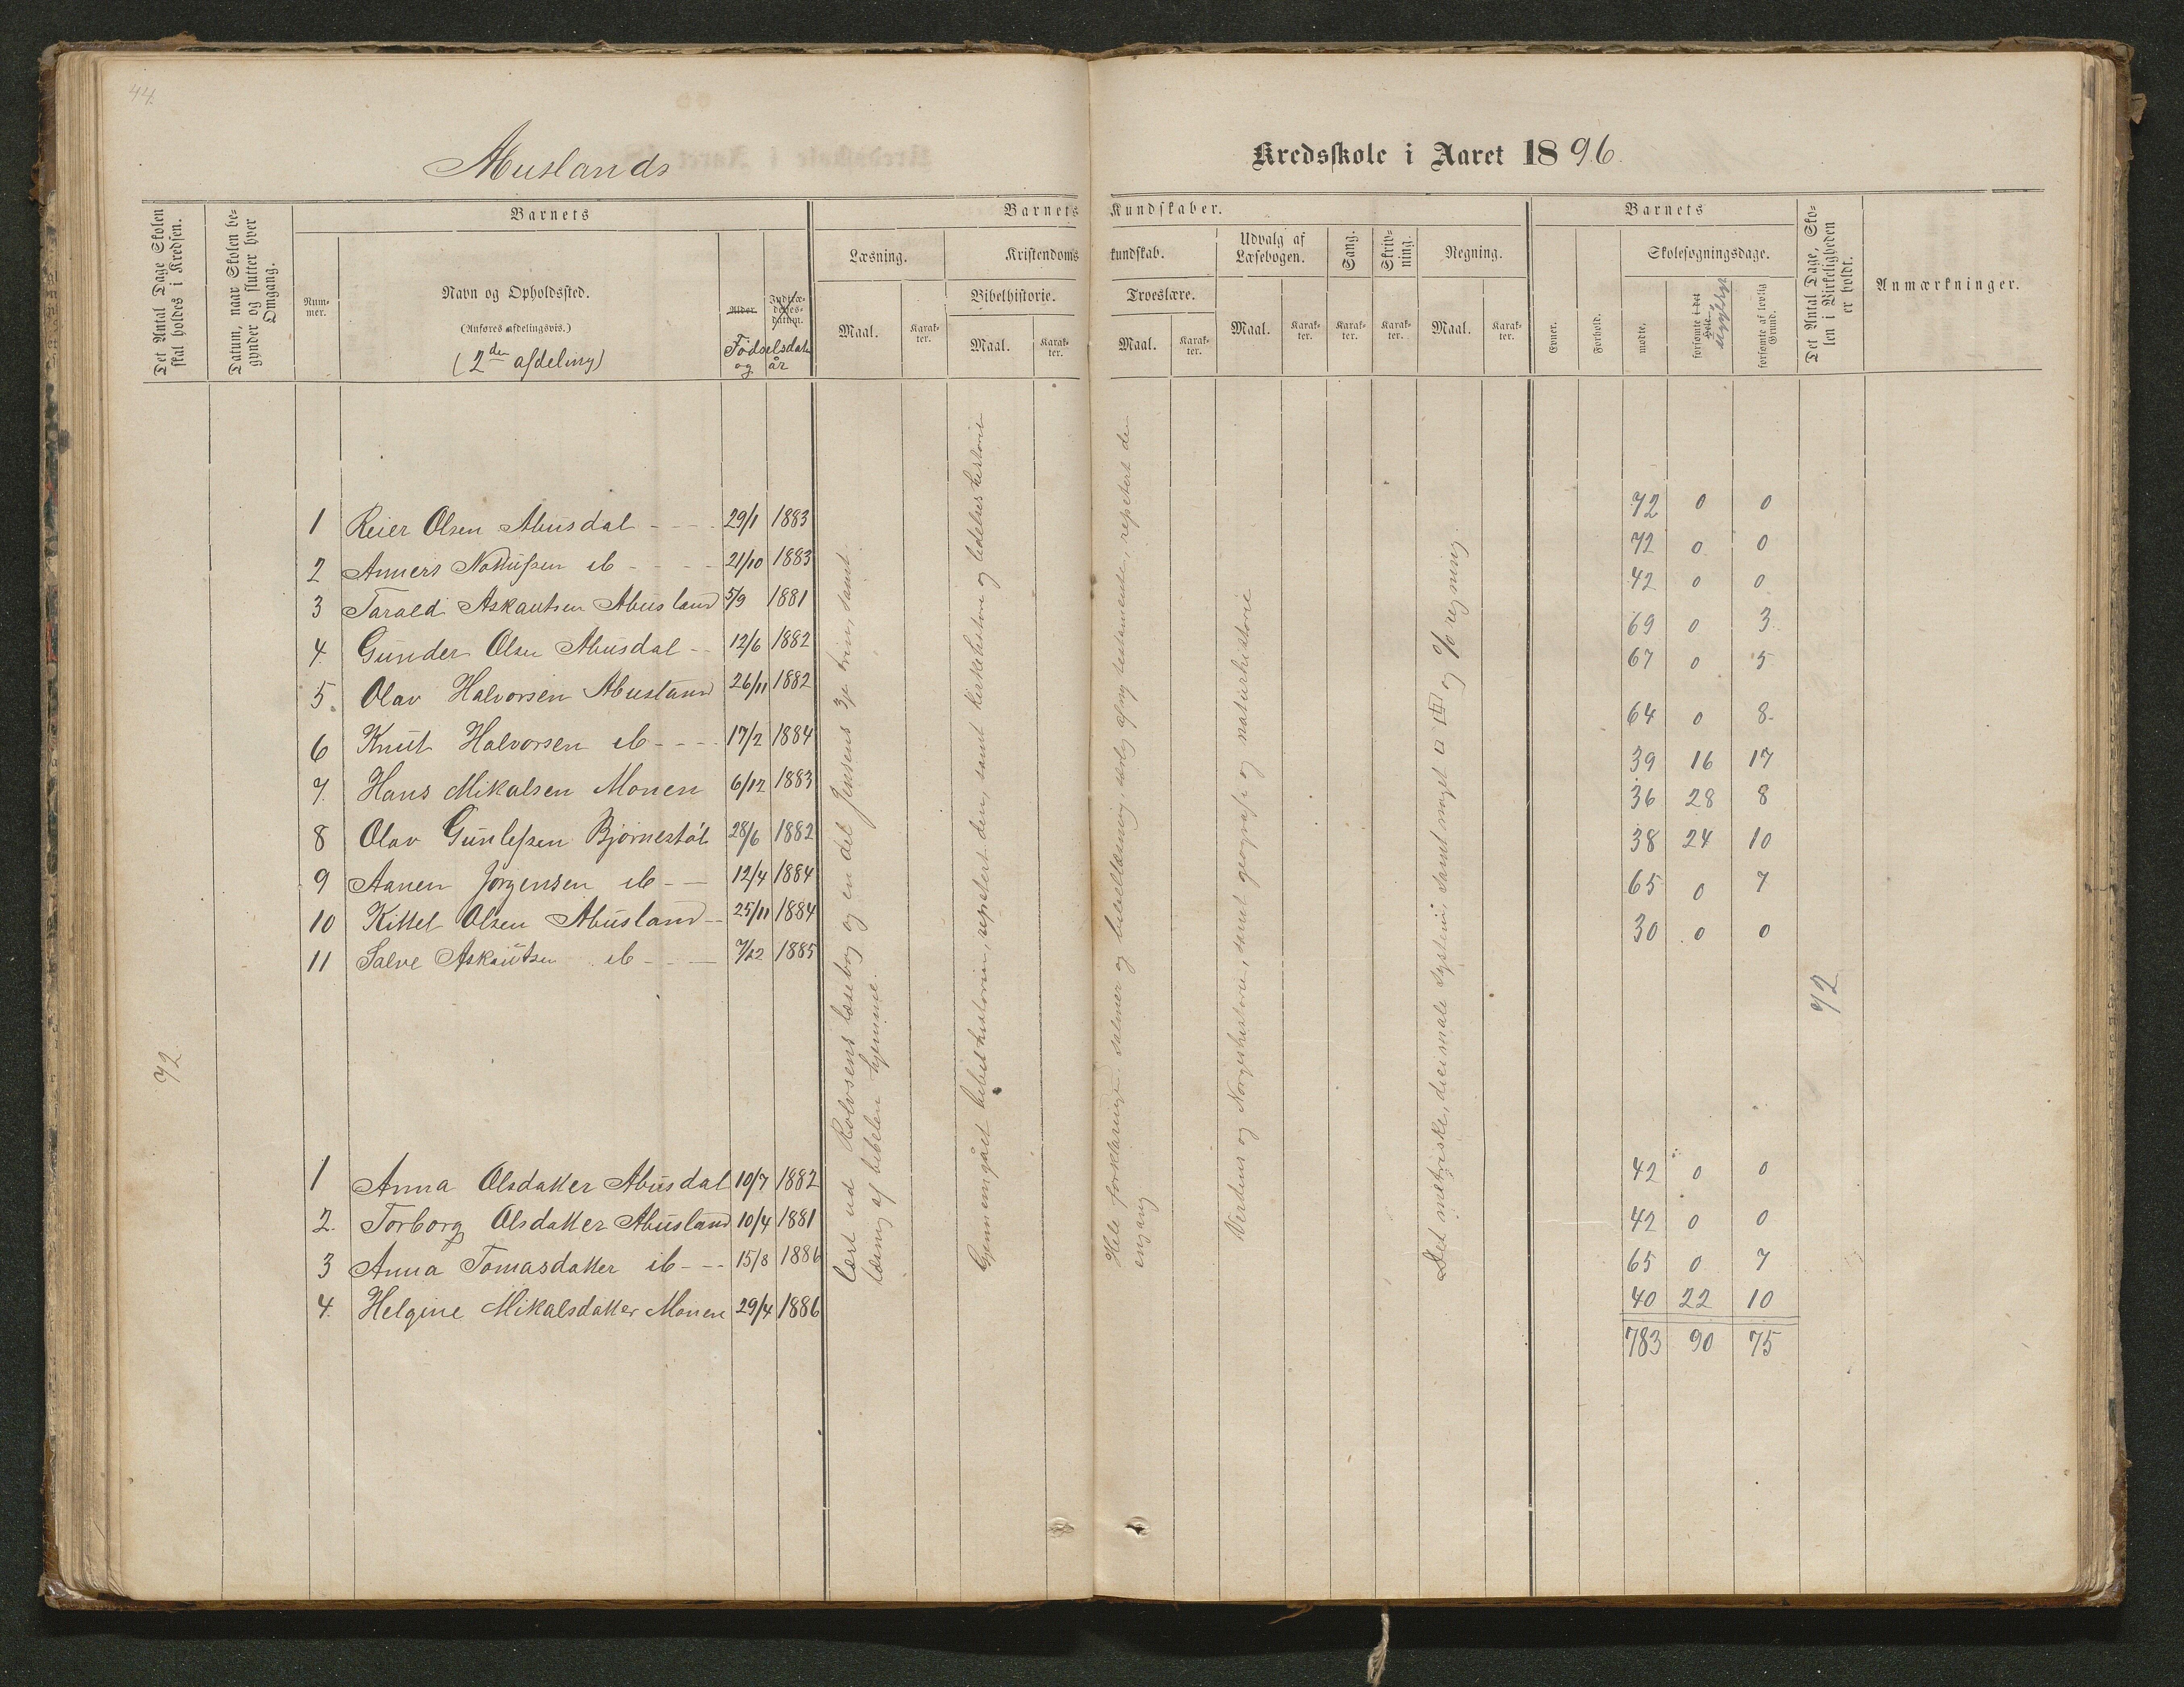 44.
Abuslands
Kredsskole i Aaret 1896.
Det Antal Dage Skolen skal holdes i Kredsen.
Datum, naar Skolen begynder og slutter hver Omgang.
Barnets
Num-
mer.
Navn og Opholdssted.
(Anføres afdelingsvis.)
(2den afdeling)
Alder.
Indtræ-
delses-
datum.
Fødselsdato
og år
Barnets Kundskaber.
Læsning.
Maal.
Karak-
ter.
Kristendomskundskab.
Bibelhistorie.
Maal.
Karak-
ter.
Troeslære.
Maal.
Karak-
ter.
Udvalg af
Læsebogen.
Maal.
Karak-
ter.
Sang.
Karak-
ter.
Skriv-
ning.
Karak-
ter.
Regning.
Maal.
Karak-
ter.
Barnets
Evner.
Forhold.
Skolesøgningsdage.
mødte.
forsømte i det Hele.
sygefulge
forsømte af lovlig Grund.
Det Antal Dage, Sko-
len i Virkeligheden
er holdt.
Anmærkninger.
1 Reier Olsen Abusdal - - - 29/1 1883 72 0 0
2 Anners Nottussen ib - - - - 21/10 1883 72 0 0
3 Tarald Askautsen Abusland 5/9 1881 42 0 0
4. Gunder Olsen Abusdal - - 12/6 1882 69 0 3.
5. Olav Halvorsen Abusland 26/11 1882 67 0 5
6 Knut Halvorsen ib - - - - 17/2 1884 64 0 8.
7. Hans Mikalsen Monen 6/12 1883 39 16 17
8 Olav Gunlefsen Bjørnestøl 28/6 1882 36 28 8
9 Aanen Jørgensen ib - - 12/4 1884 38 24 10
10 Kittel Olsen Abusland - - 25/11 1884 65 0 7
11 Salve Askautsen ib - - - 7/22 1885 30 0 0
72
72
1 Anna Olsdatter Abusdal 10/7 1882 42 0 0
2. Torborg Olsdatter Abusland 10/4 1881 42 0 0
3 Anna Tomasdatter ib - - - 15/8 1886 65 0 7
4. Helgine Mikalsdatter Monen 29/4 1886 40 22 10
783 90 75
Lært ud Rolvsens læsebog og en del Jensens 3je trin, samt
læsning af bibelen hjemme.
Gjennemgået bibelhistorien, repetert den, samt kirkehistorie og lidelseshistorie
Hele forklaringen, salmer og bibellæsning, særlig af ny testamente, repetert den
engang
Verdens og Norgeshistorie, samt geografi og naturhistorie
Det metriske, decimale system, samt meget □ og % regning